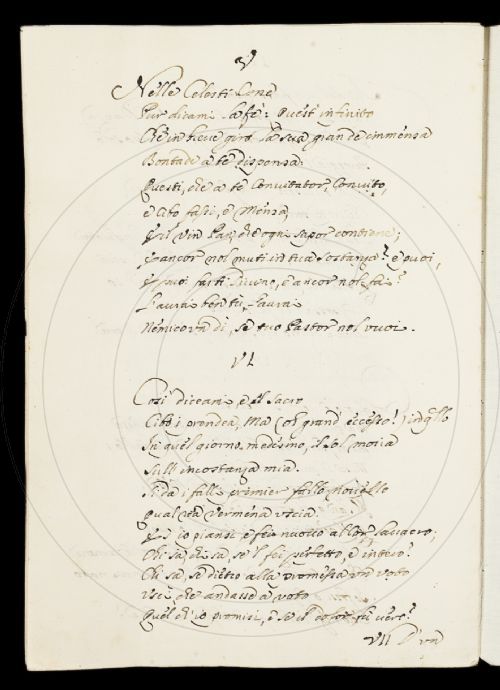 V
Nelle Celesti Cene
Pur dicami la fè: Quest' infinito
Che in breve giro la sua grande immensa
Bontade a te dispensa.
Questi, che a te Convitator, Convito,
e Cibo fassi, e Mensa,
È il vin Pan, che ogni sapor contiene;
E ancor nol muti in tua sostanza? e puoi,
E puoi farti Divino, e ancor nol fai?
Saurai ben tu, saurai
Nemico un dì, se tuo Pastor nol vuoi.
VI
Così diceami, e il sacro
Cibo i prendea, Ma (oh grand' eccesso!) in
In quel giorno medesmo, il sol moria
Sull' incostanza mia.
Si da i falli primier fallo novello
Qual rea vermena uscia.
Ed io piansi, e feci nuovo al Cor lavacro;
Chi sa, chi sa, se 'l fei perfetto, e intero?
Chi sa, se dietro alla promessa un voto
Uscì che andasse a voto
Quel ch' io promisi, e se il dolor fu vero?
VII D'un